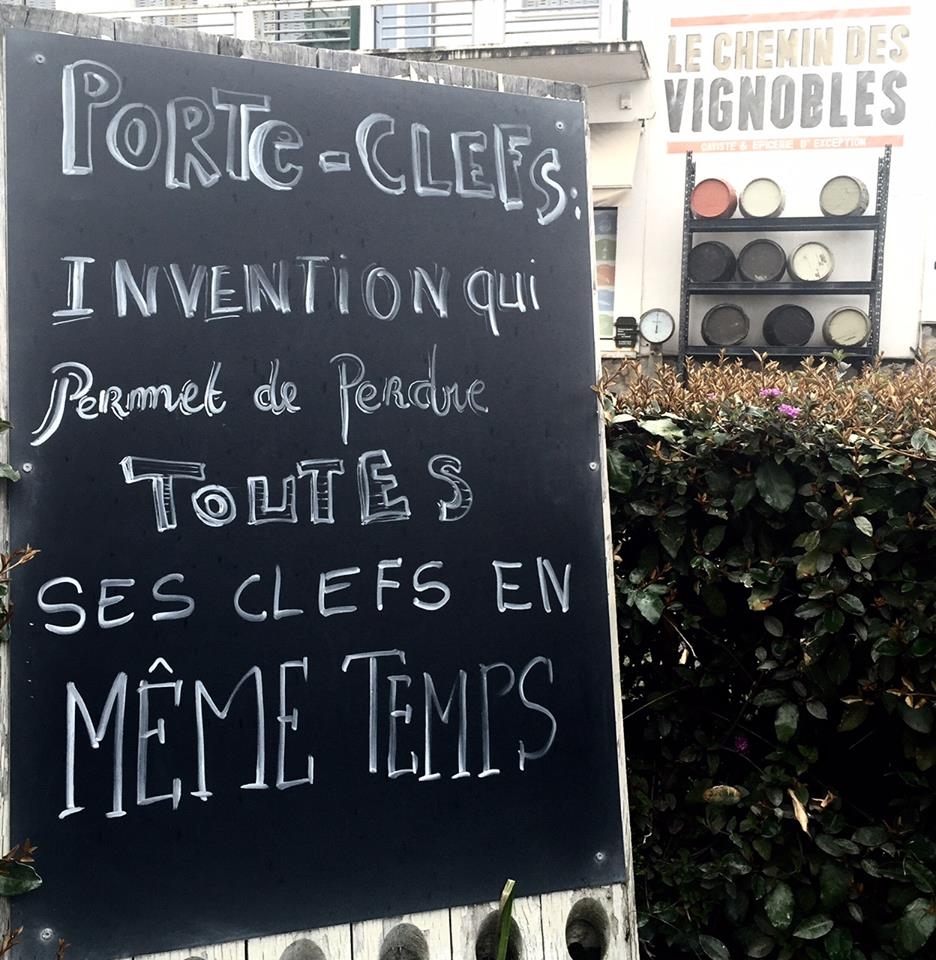 PORTe-CLEFS:
INVENTiON qui
Permet de Perdre
TOUTES
SES CLEFS EN
MÊME TEMPS
LE CHEMIN DES
VIGNOBLES
CAVISTE & EPICERIE D'EXCEPTION